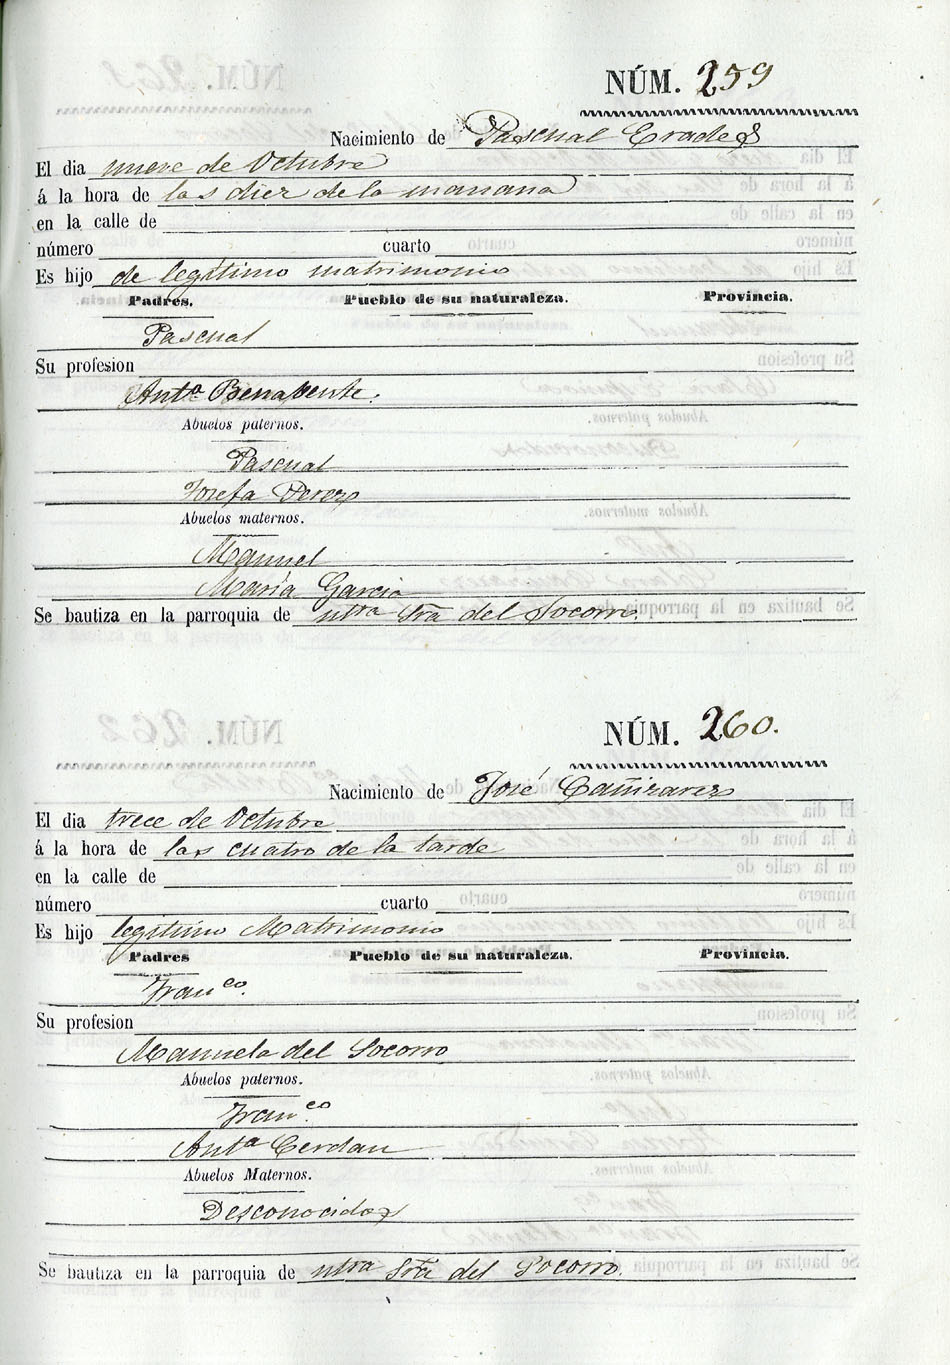 NÚM. 259
Nacimiento de Pascual Erades
El dia nueve de Octubre
á la hora de las diez de la manana
en la calle de
número cuarto
Es hijo de legitimo matrimonio
Padres. Pueblo de su naturaleza. Provincia.
Pascual
Su profesion
Antª Benavente.
Abuelos paternos.
Pascual
Josefa Perez
Abuelos maternos.
Manuel
Maria Garcia
Se bautiza en la parroquia de ntra Sra del Socorro.
NÚM. 260.
Nacimiento de José Cañizarez
El dia trece de Octubre
á la hora de las cuatro de la tarde
en la calle de
número cuarto
Es hijo legitimo Matrimonio
Padres Pueblo de su naturaleza. Provincia.
Franco.
Su profesion
Manuela del Socorro
Abuelos paternos.
Franco
Antª Cerdan
Abuelos Maternos.
Desconocidos
Se bautiza en la parroquia de ntra Sra del Socorro.